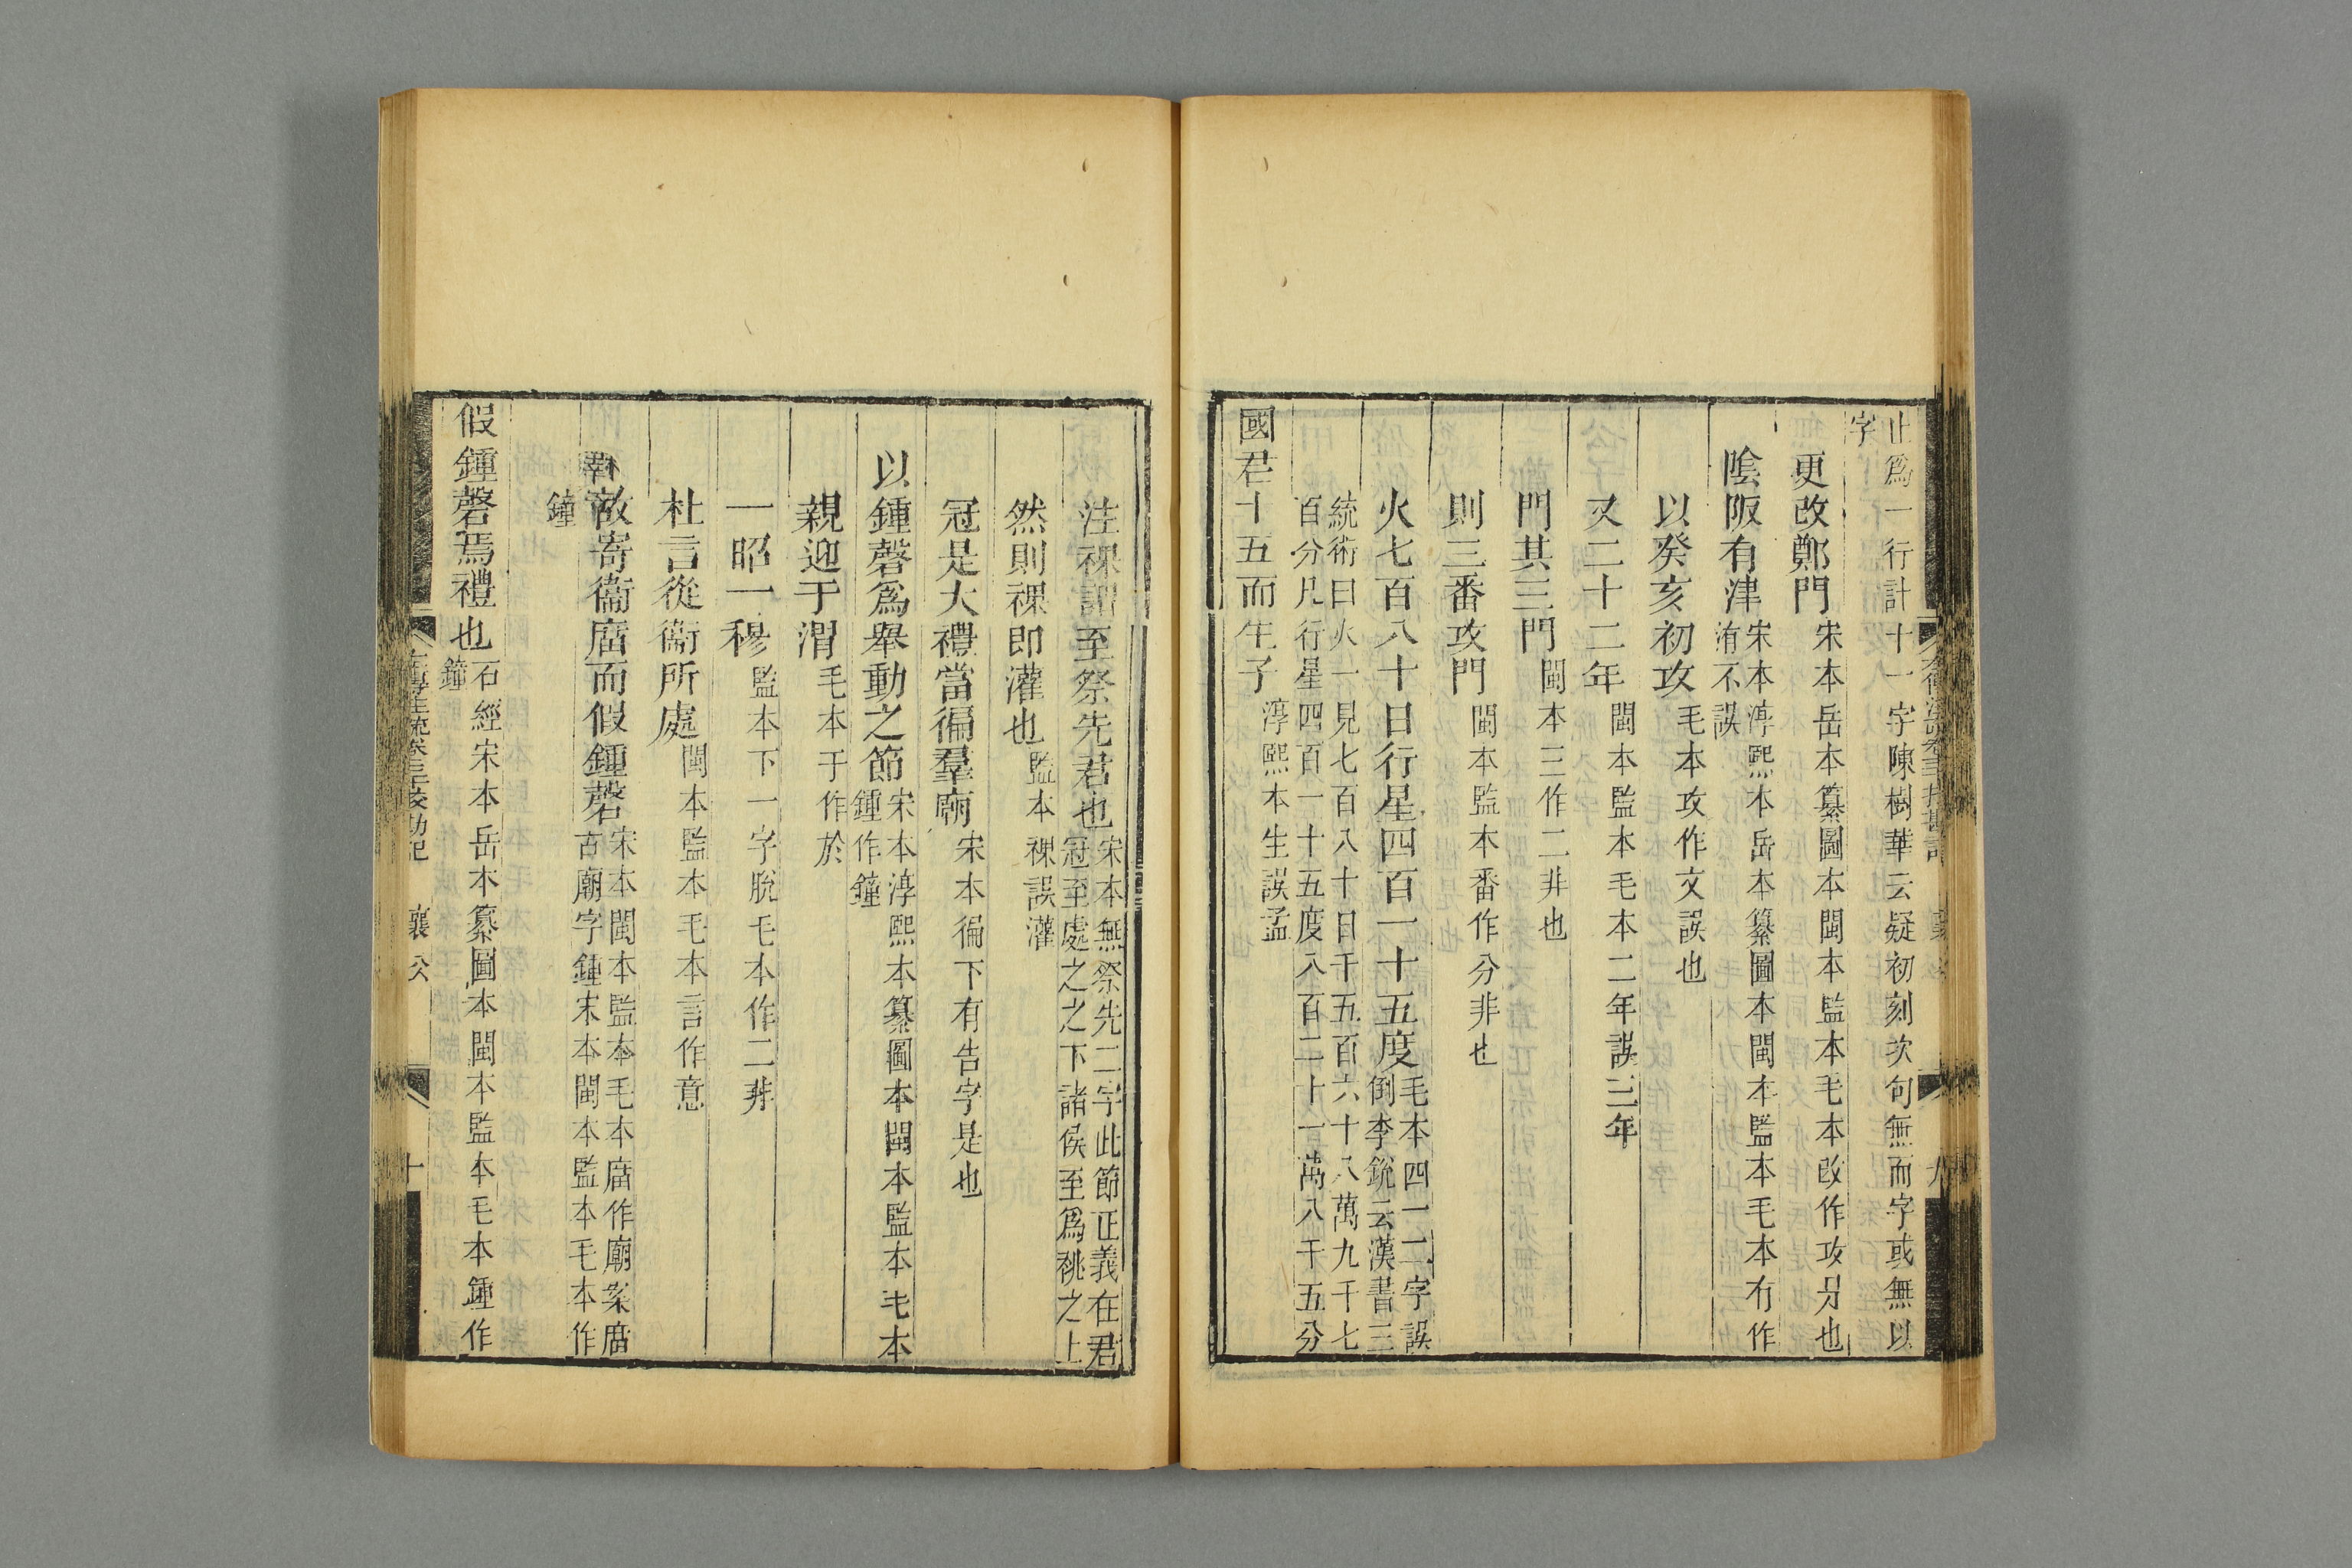 止爲一行計十一字陳樹華云疑初刻次句無而字或無以
字
更改鄭門宋本岳本纂圖本閩本監本毛本改作攻是也
陰阪有津宋本淳熙本岳本纂圖本閩本監本毛本有作
洧不誤
以癸亥初攻毛本攻作文誤也
又二十二年閩本監本毛本二年誤三年
門其三門閩本三作二非也
則三番攻門閩本監本番作分非也
火七百八十日行星四百一十五度毛本四一二字誤
倒李銳云漢書三
統術曰火一見七百八十日千五百六十八萬九千七
百分凡行星四百一十五度八百二十一萬八千五分
國君十五而生子淳熙本生誤孟
襄公
注祼謂至祭先君也宋本無祭先二字此節正義在君
冠至處之之下諸侯至爲祧之上
然則祼即灌也監本祼誤灌
冠是大禮當徧羣廟宋本徧下有告字是也
以鍾磬爲舉動之節宋本淳熙本纂圖本閩本監本毛本
鍾作鐘
親迎于渭毛本于作於
一昭一穆監本下一字脫毛本作二非
杜言從衞所處閩本監本毛本言作意
故寄衞庿而假鍾磬宋本閩本監本毛本庿作廟案庿
古廟字鍾宋本閩本監本毛本作
鐘
假鍾磬焉禮也石經宋本岳本纂圖本閩本監本毛本鍾作
鐘
襄公
十